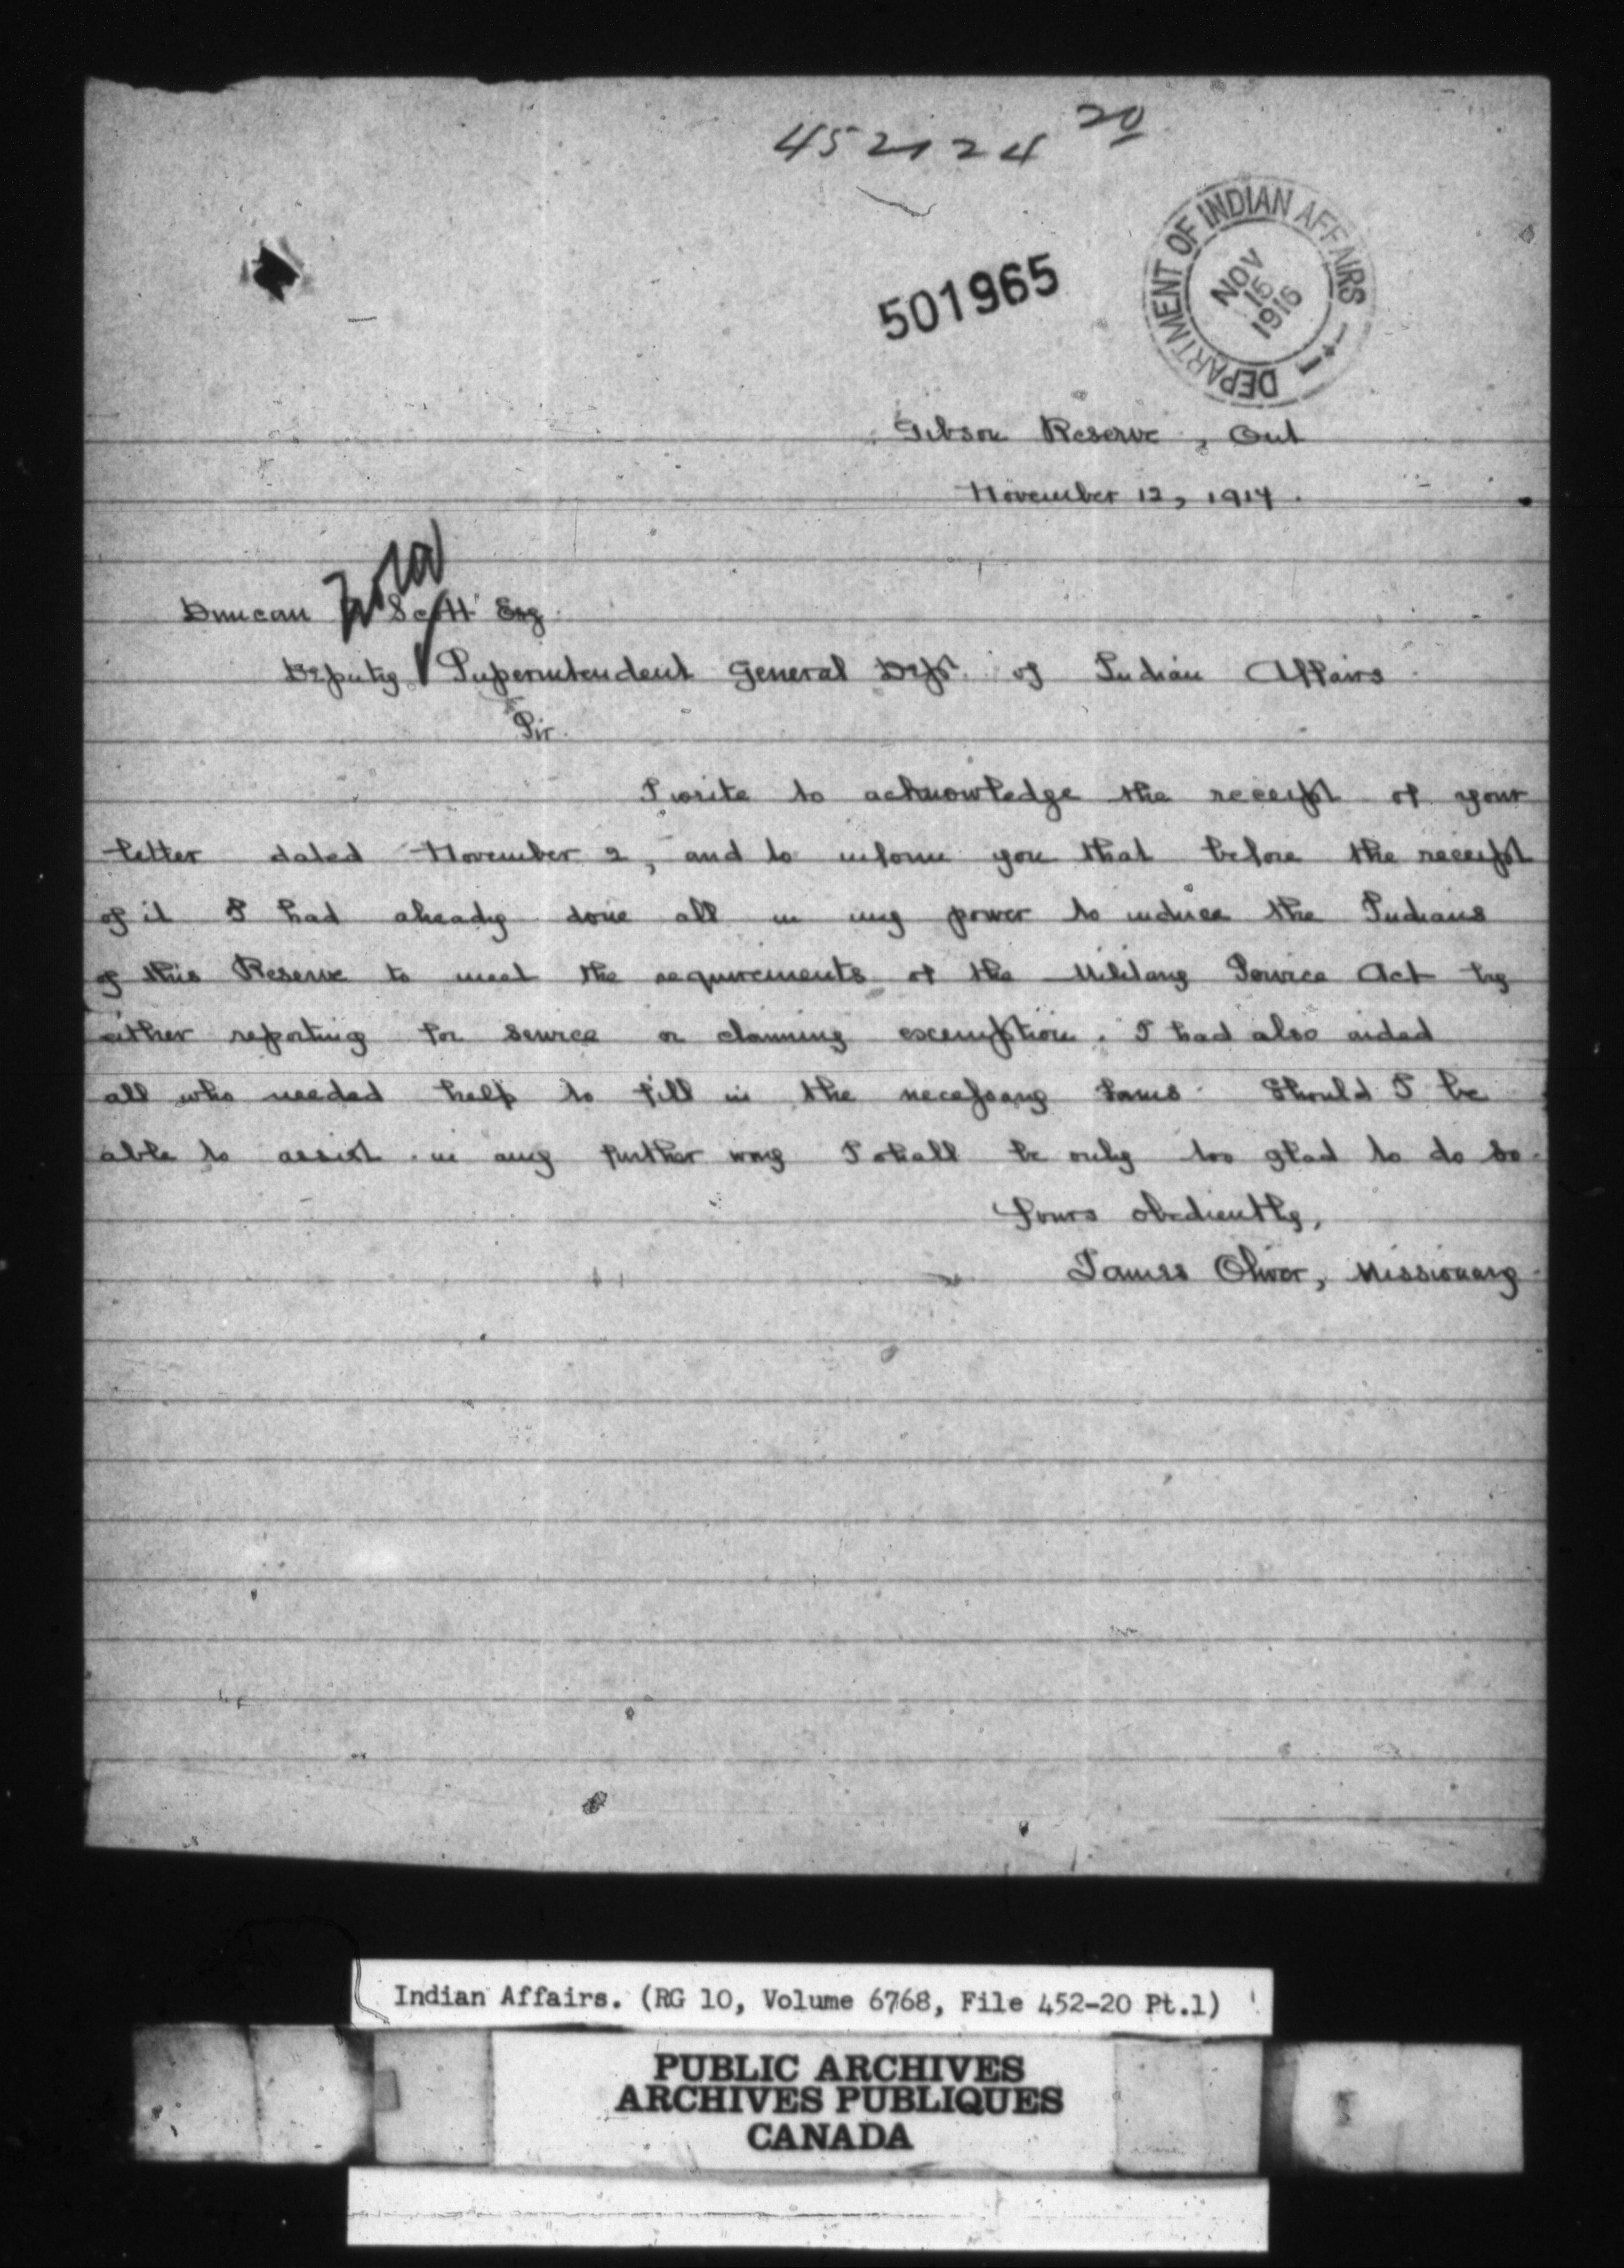 452124 20
501965
DEPARTMENT OF INDIAN AFFAIRS
NOV
15
1916
Gibson Reserve, Ont
November 12, 1917.
Duncan Scott Esq
Deputy Superintendent General Dept. of Indian Affairs.
Sir.
I write to acknowledge the receipt of your
letter dated November 2, and to inform you that before the receipt
of it I had already done all in my power to induce the Indians
of this Reserve to meet the requirements of the Military Service Act by
either reporting for service or claiming excemption. I had also aided
all who needed help to fill in the necessary forms. Should I be
able to assist in any further way I shall be only too glad to do so.
Yours obediently,
James Oliver, Missionary.
Indian Affairs. (RG 10, Volume 6768, File 452-20 Pt.1)
PUBLIC ARCHIVES
ARCHIVES PUBLIQUES
CANADA